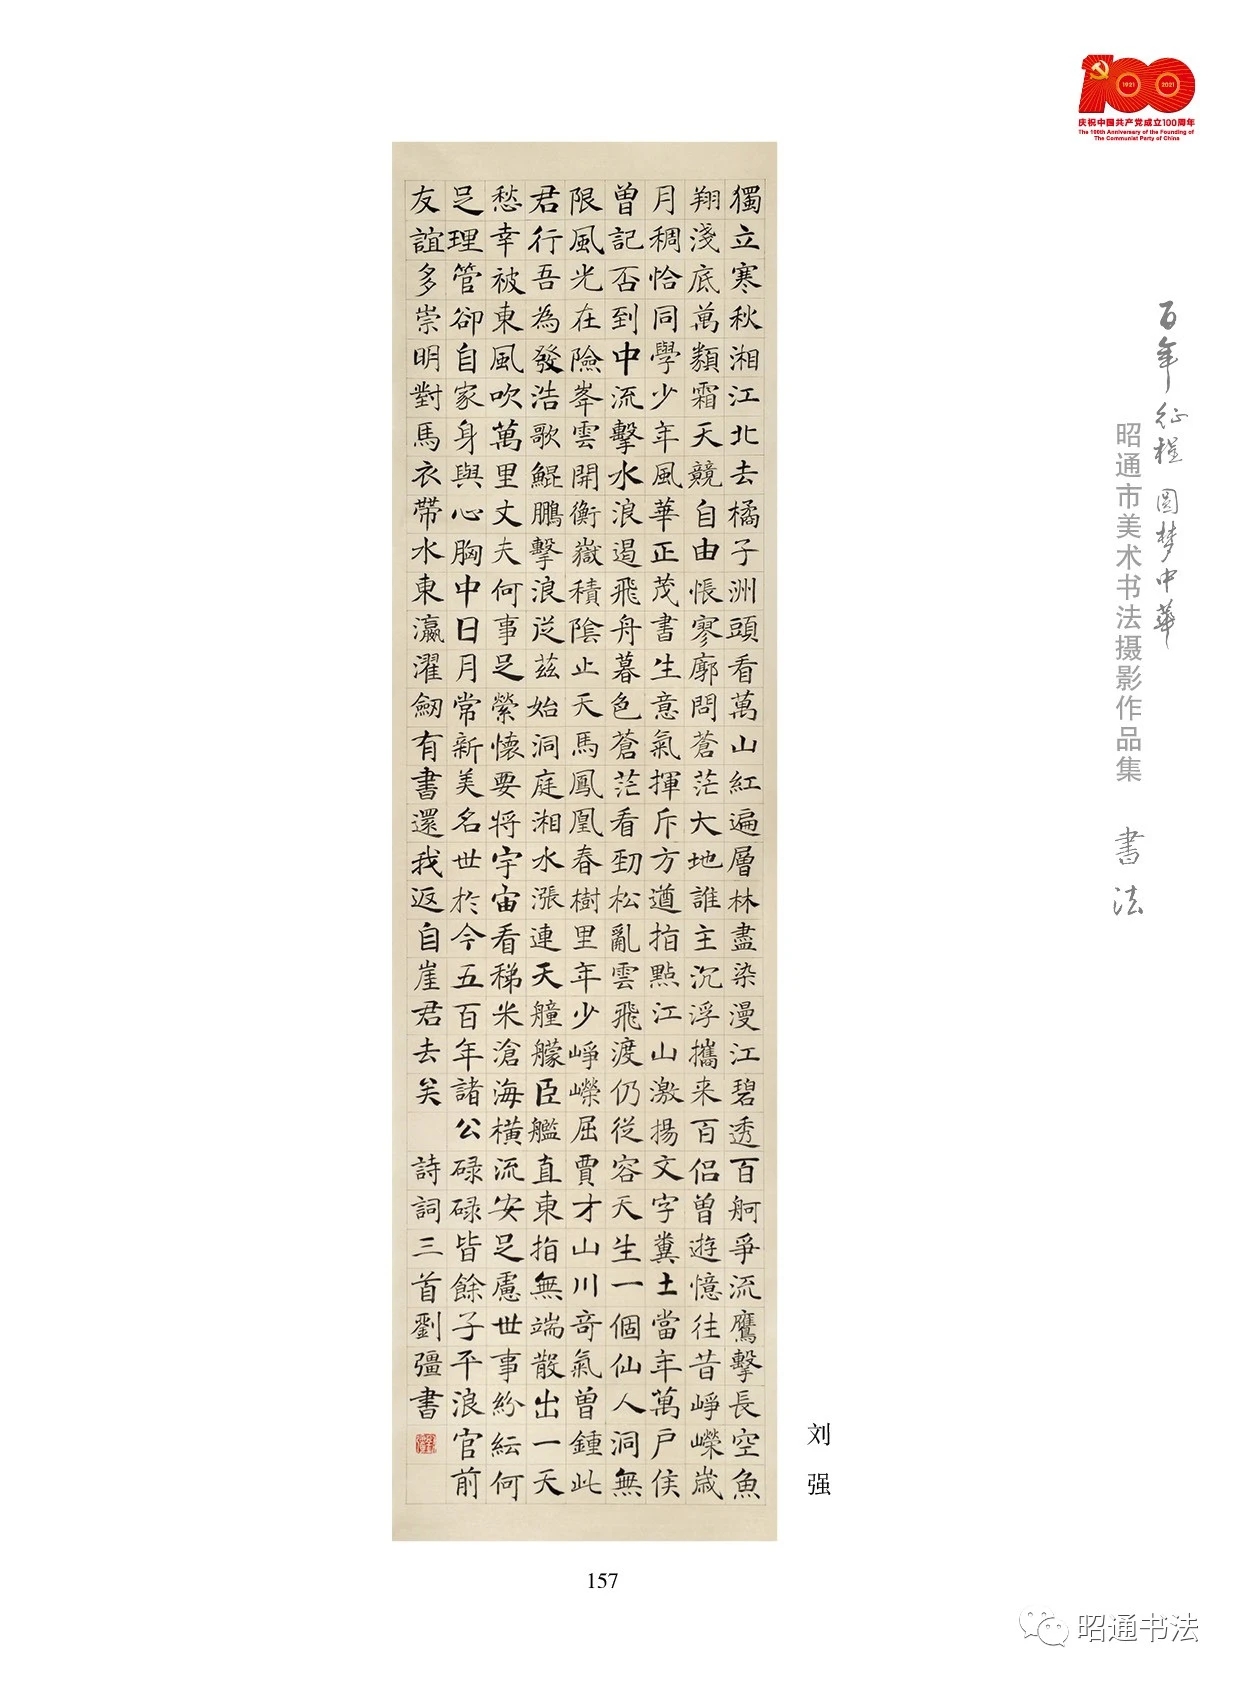 1921 2021
庆祝中国共产党成立100周年
The 100th Anniversary of the Founding of
The Communist Party of China
獨立寒秋湘江北去橘子洲頭看萬山紅遍層林盡染漫江碧透百舸爭流鷹擊長空魚
翔淺底萬類霜天競自由悵寥廓問蒼茫大地誰主沉浮攜来百侶曾遊憶往昔崢嶸歲
月稠恰同學少年風華正茂書生意氣揮斥方遒指點江山激揚文字糞土當年萬戶侯
曾記否到中流擊水浪遏飛舟暮色蒼茫看勁松亂雲飛渡仍從容天生一個仙人洞無
限風光在險峯雲開衡嶽積陰止天馬鳳凰春樹里年少崢嶸屈賈才山川奇氣曾鍾此
君行吾為發浩歌鯤鵬擊浪從茲始洞庭湘水漲連天艟艨臣艦直東指無端散出一天
愁幸被東風吹萬里丈夫何事足縈懷要將宇宙看稊米滄海橫流安足慮世事紛紜何
足理管卻自家身與心胸中日月常新美名世於今五百年諸公碌碌皆餘子平浪官前
友誼多崇明對馬衣帶水東瀛濯劒有書還我返自崖君去矣 詩詞三首劉彊書
刘强
百年征程 圆梦中華
昭通市美术书法摄影作品集 書法
157
昭通书法